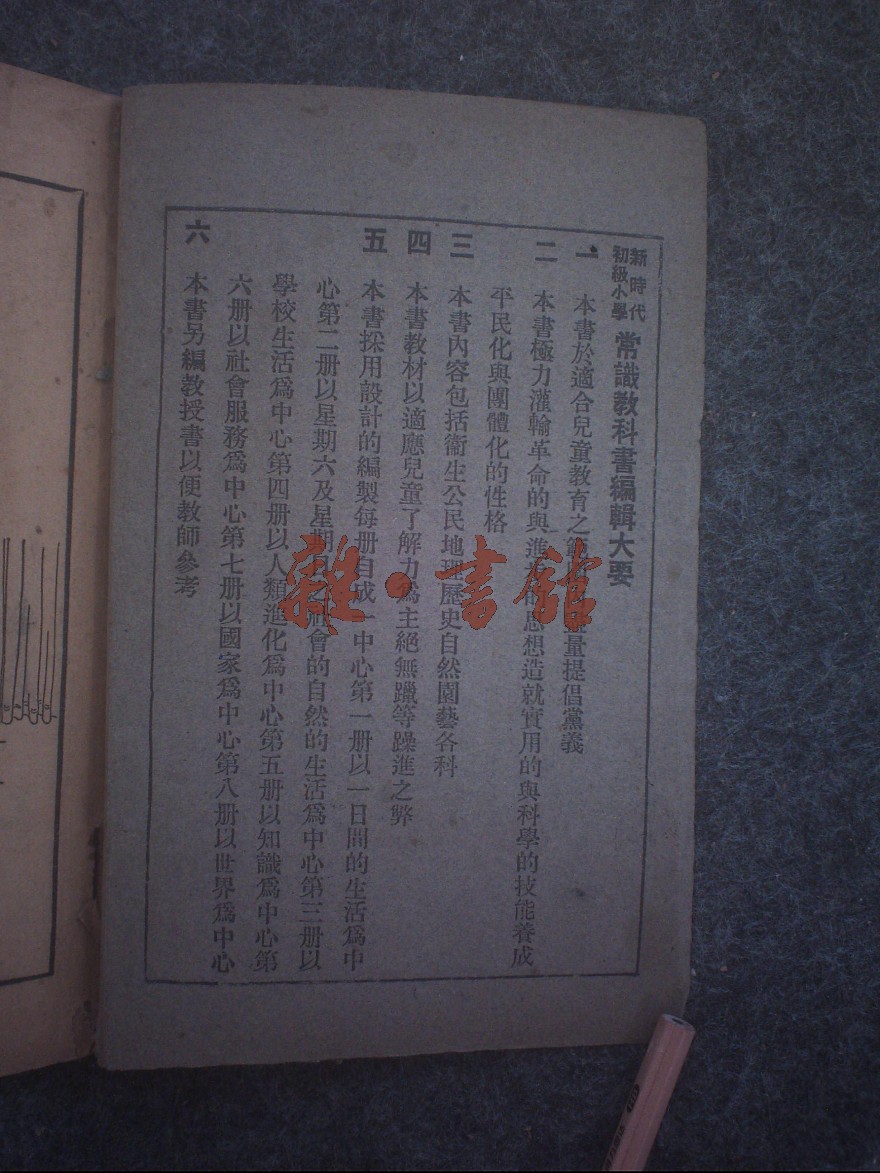 新時代
初級小學
常識教科書編輯大要
一 本書於適合兒童教育之 盡量提倡黨義
二 本書極力灌輸革命的與進步的思想造就實用的與科學的技能養成
平民化與團體化的性格
三 本書內容包括衞生公民地理歷史自然園藝各科
四 本書教材以適應兒童了解力爲主絕無躐等躁進之弊
五 本書採用設計的編製每册自成一中心第一册以一日間的生活爲中
心第二册以星期六及星期日 社會的自然的生活爲中心第三册以
學校生活爲中心第四册以人類進化爲中心第五册以知識爲中心第
六册以社會服務爲中心第七册以國家爲中心第八册以世界爲中心
六 本書另編教授書以便教師參考
雜·書館